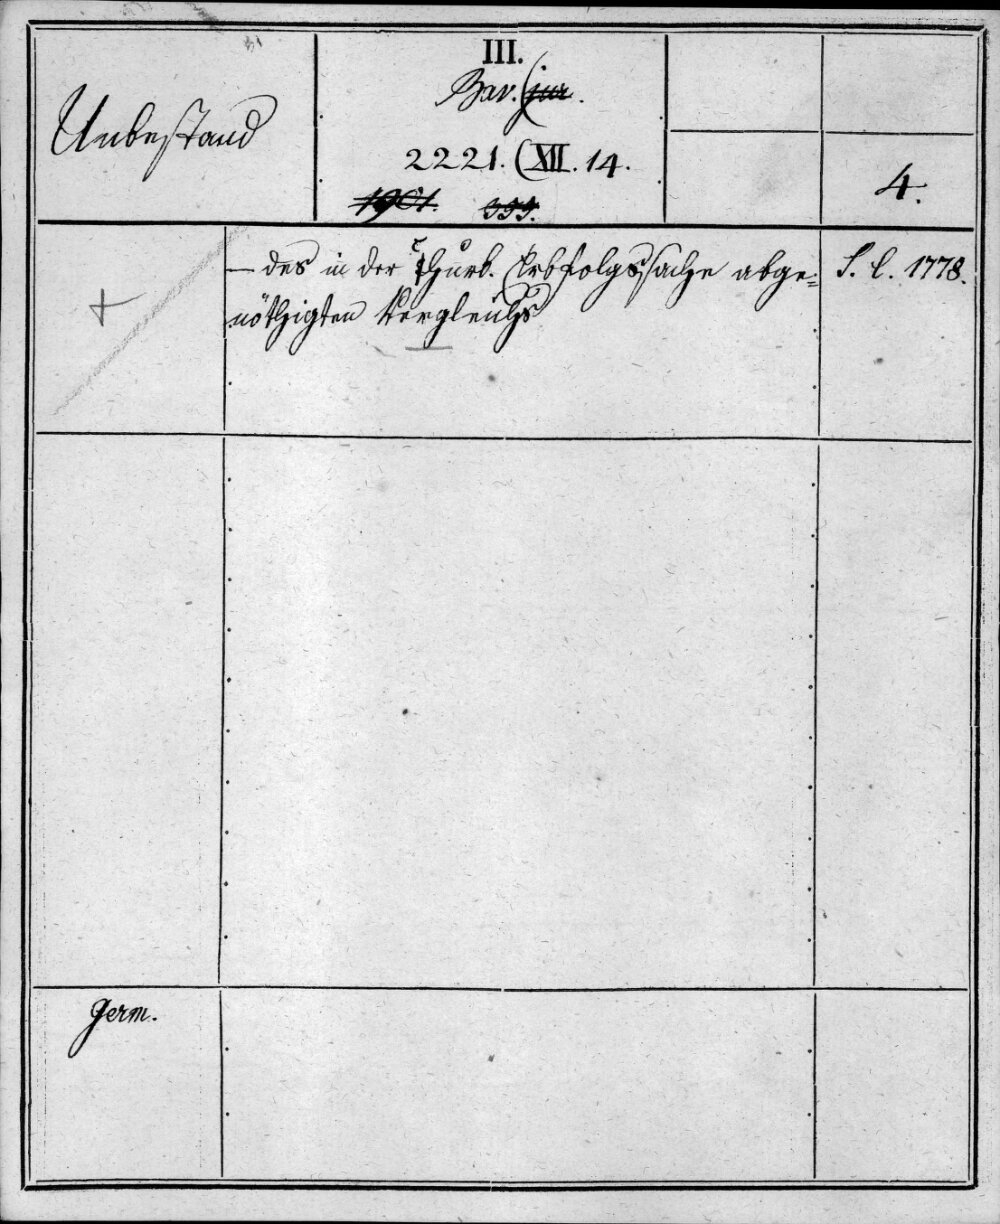 Unbestand
III.
Bav. (jur.
2221. (XII. 14.
1901. 393.
4.
— des in der Churb. Erbfolgssache abge=
nöthigten Vergleichs
S. l. 1778.
Germ.